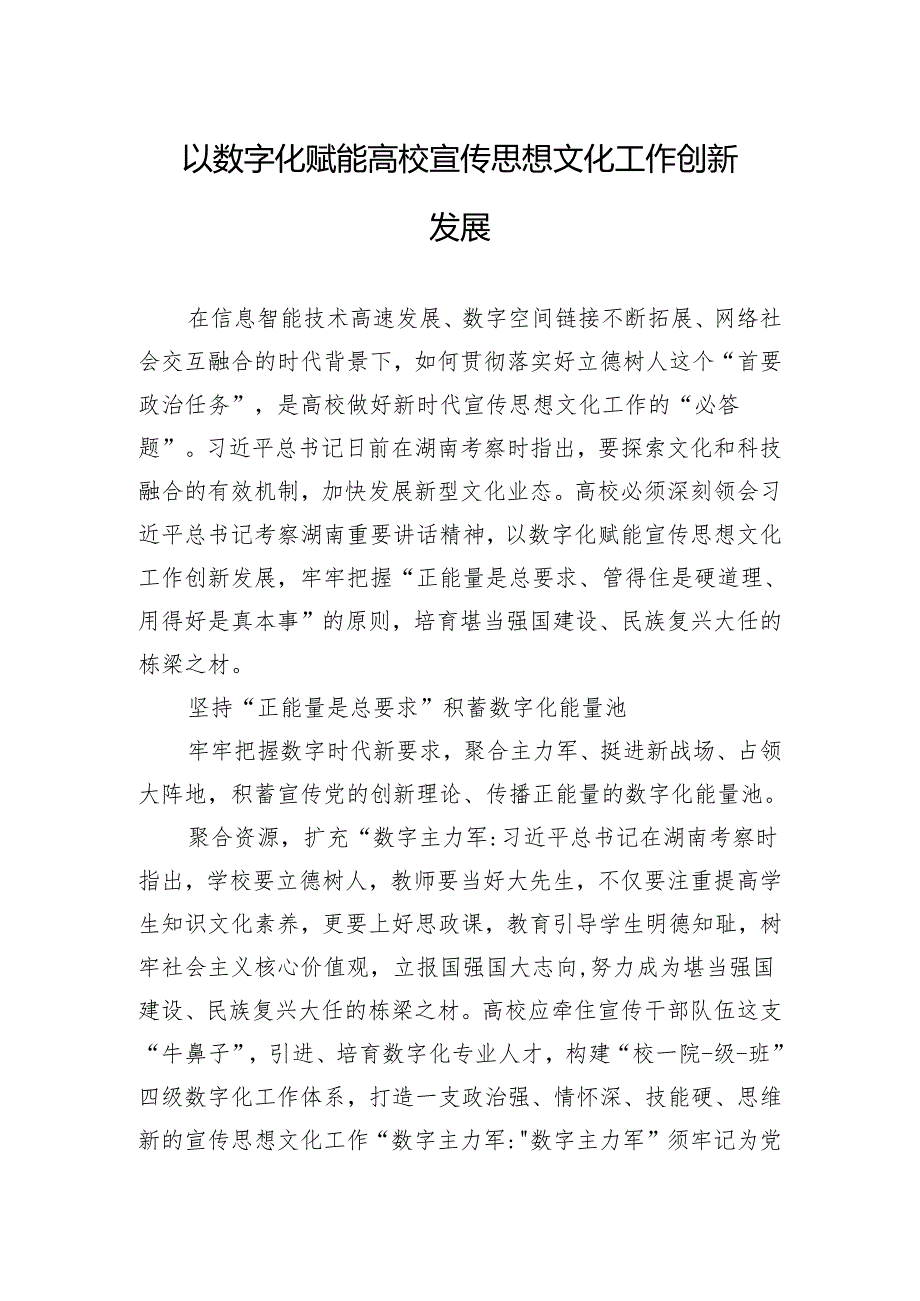 以数字化赋能高校宣传思想文化工作创新
发展
在信息智能技术高速发展、数字空间链接不断拓展、网络社
会交互融合的时代背景下，如何贯彻落实好立德树人这个“首要
政治任务”，是高校做好新时代宣传思想文化工作的“必答
题”。习近平总书记日前在湖南考察时指出，要探索文化和科技
融合的有效机制，加快发展新型文化业态。高校必须深刻领会习
近平总书记考察湖南重要讲话精神，以数字化赋能宣传思想文化
工作创新发展，牢牢把握“正能量是总要求、管得住是硬道理、
用得好是真本事”的原则，培育堪当强国建设、民族复兴大任的
栋梁之材。
坚持“正能量是总要求”积蓄数字化能量池
牢牢把握数字时代新要求，聚合主力军、挺进新战场、占领
大阵地，积蓄宣传党的创新理论、传播正能量的数字化能量池。
聚合资源，扩充“数字主力军:习近平总书记在湖南考察时
指出，学校要立德树人，教师要当好大先生，不仅要注重提高学
生知识文化素养，更要上好思政课，教育引导学生明德知耻，树
牢社会主义核心价值观，立报国强国大志向,努力成为堪当强国
建设、民族复兴大任的栋梁之材。高校应牵住宣传干部队伍这支
“牛鼻子”，引进、培育数字化专业人才，构建“校一院-级-班”
四级数字化工作体系，打造一支政治强、情怀深、技能硬、思维
新的宣传思想文化工作“数字主力军:"数字主力军”须牢记为党